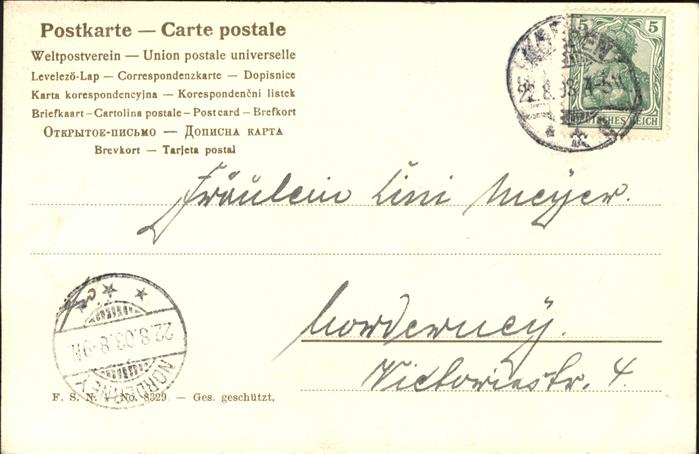 Postkarte — Carte postale
Weltpostverein — Union postale universelle
Levelező-Lap — Correspondenzkarte — Dopisnice
Karta korespondencyjna — Korespondenční listek
Briefkaart — Cartolina postale — Postcard — Brefkort
Открытое-письмо — Дописна карта
Brevkort — Tarjeta postal
5 5
DEUTSCHES REICH
22.8.03. 4-5N
Fräulein Lini Meyer.
Norderney.
Victoriastr. 4.
22.8.03.8-9N
NORDERNEY
F. S. N. No. 8329 — Ges. geschützt.